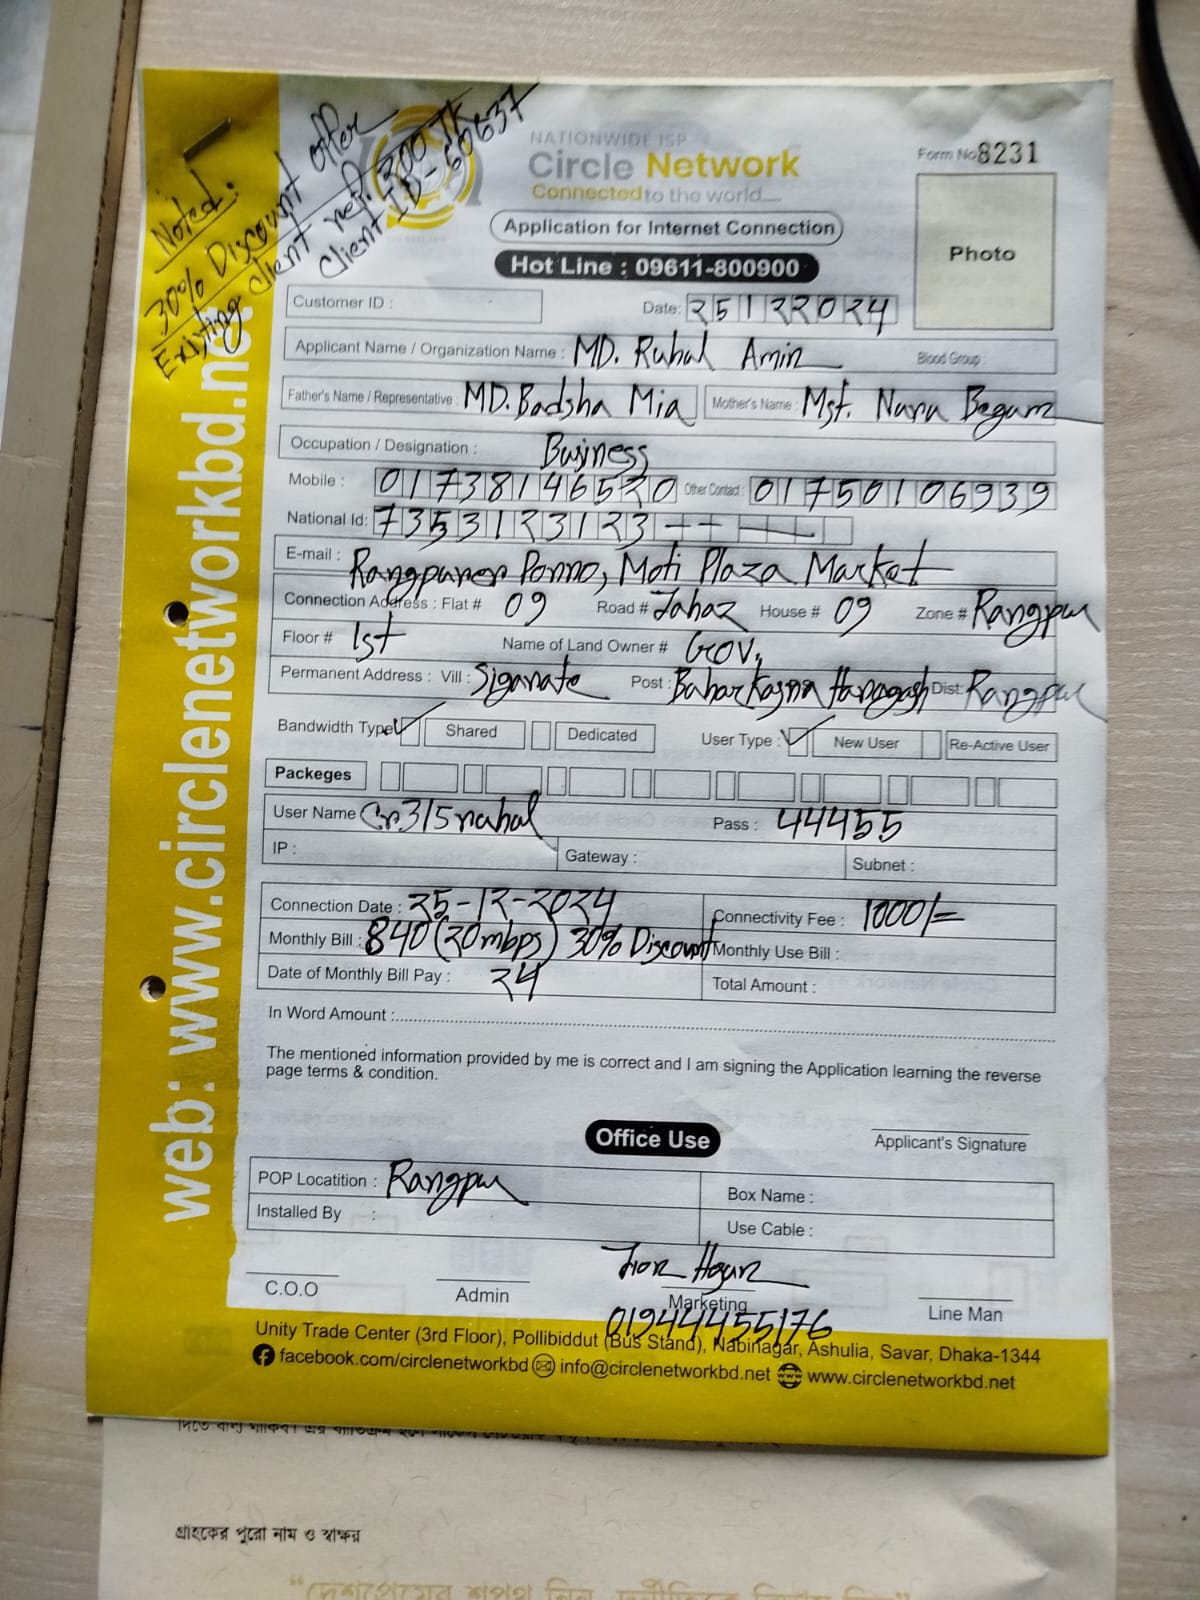 Noted:
30% Discount offer
Existing client ref. 300 TK
Client ID-60637
NATIONWIDE ISP
Circle Network
Connected to the world....
Form No 8231
Application for Internet Connection
Hot Line : 09611-800900
Photo
Customer ID :
Date: 25122024
Applicant Name / Organization Name : MD. Ruhul Amin
Blood Group :
Father's Name / Representative : MD. Badsha Mia
Mother's Name : Mst. Nuru Begum
Occupation / Designation : Business
Mobile : 01738146520 Other Contact : 01750106939
National Id: 7353123123
E-mail : Rangpurer Ponno, Moti Plaza Market
Connection Address : Flat # 09 Road # Jahaz House # 09 Zone # Rangpur
Floor # 1st Name of Land Owner # Gov,
Permanent Address : Vill : Post : Dist: Rangpur
Bandwidth Type Shared Dedicated User Type : New User Re-Active User
Packeges
User Name Pass : 44455
IP : Gateway : Subnet :
Connection Date : 25-12-2024 Connectivity Fee : 1000/=
Monthly Bill : 840 (20mbps) 30% Discount Monthly Use Bill :
Date of Monthly Bill Pay : 24 Total Amount :
In Word Amount :
The mentioned information provided by me is correct and I am signing the Application learning the reverse
page terms & condition.
Office Use
Applicant's Signature
POP Locatition : Rangpur
Box Name :
Installed By :
Use Cable :
C.O.O Admin Marketing Line Man
01944455176
Unity Trade Center (3rd Floor), Pollibiddut (Bus Stand), Nabinagar, Ashulia, Savar, Dhaka-1344
facebook.com/circlenetworkbd info@circlenetworkbd.net www.circlenetworkbd.net
web: www.circlenetworkbd.net
গ্রাহকের পুরো নাম ও স্বাক্ষর